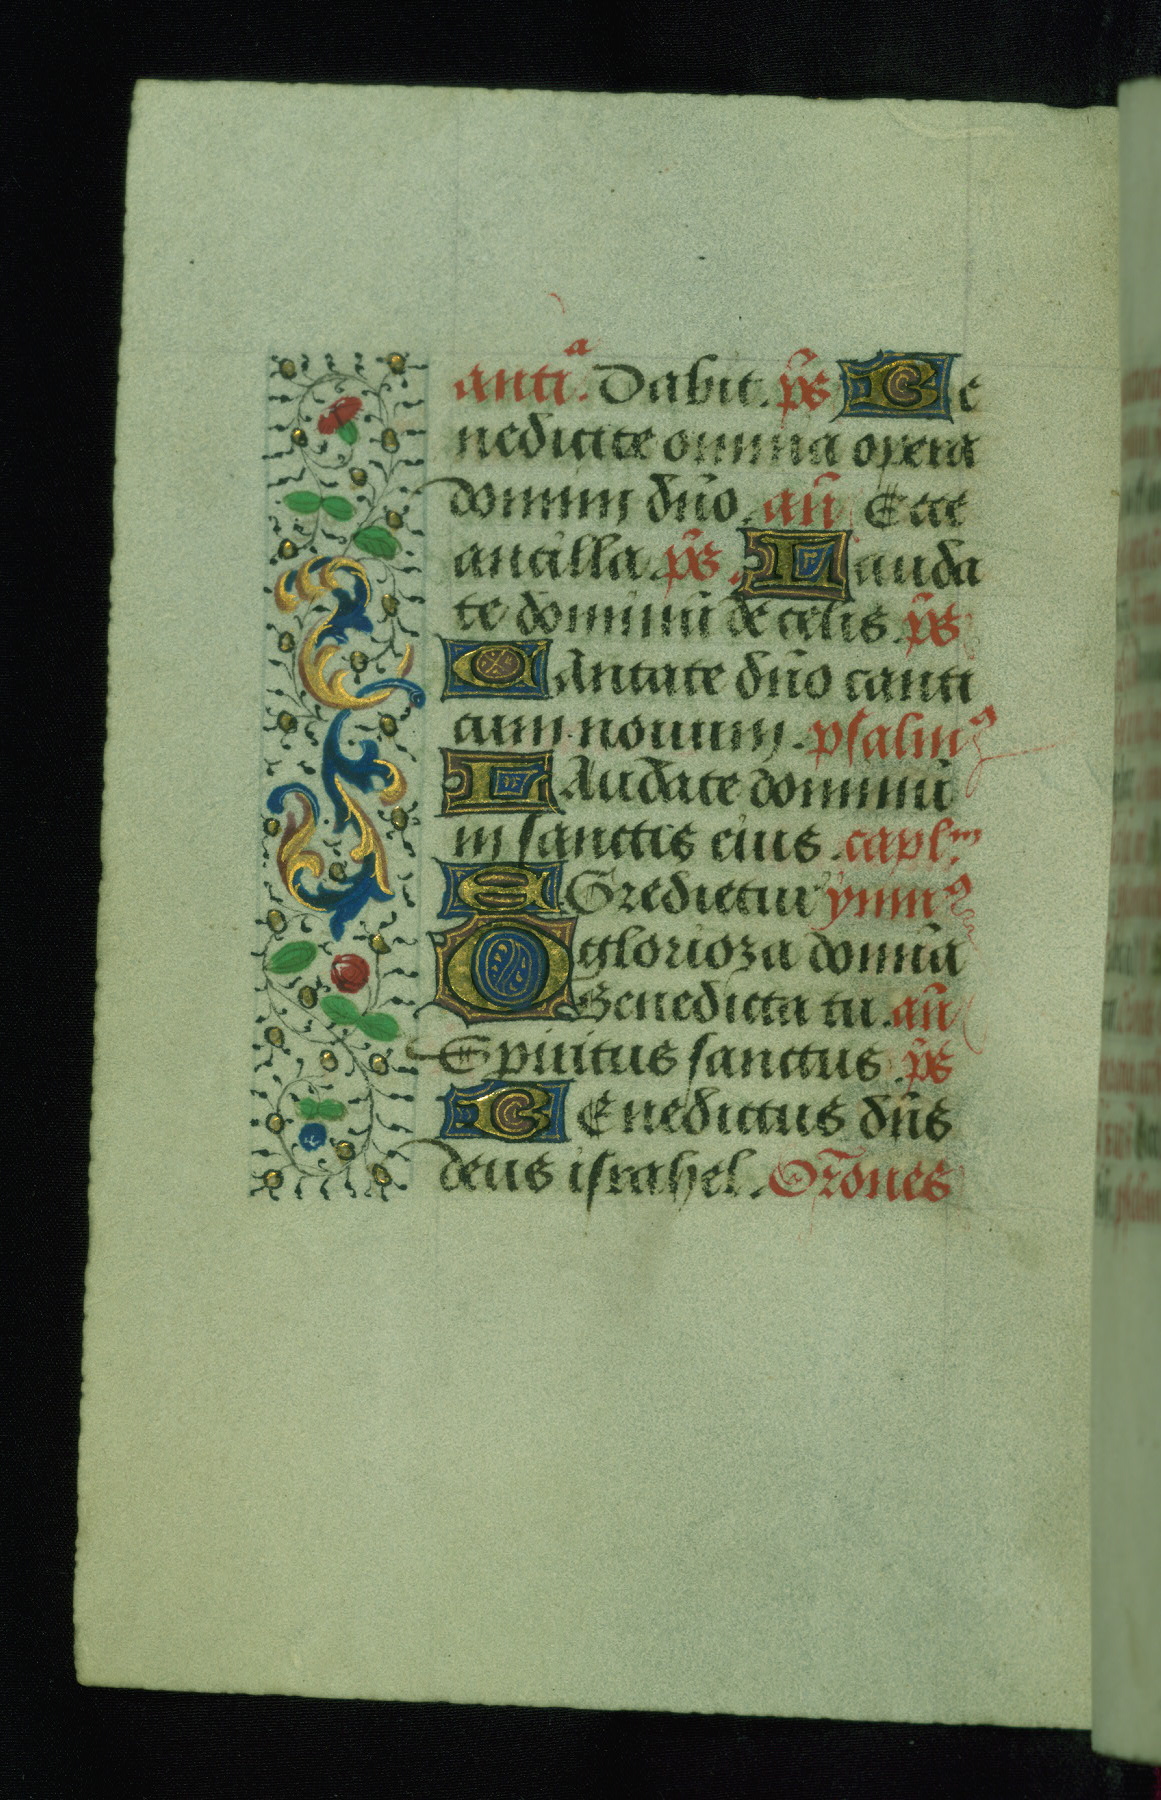 antiᵃ. Dabit. p̄s Be
nedicite omnia opera
domini dn̄o. an̄ Ecce
ancilla. p̄s. Lauda
te dominū de celis. p̄s
CAntate dn̄o canti
cum nouum. psalmꝰ
LAudate dominū
in sanctis eius. capl̄m
EGredietur ymnꝰ
O glorioza domīa
Benedicta tu. an̄
Spiritus sanctus. p̄s
BEnedictus dn̄s
deus israhel. Or̄ones